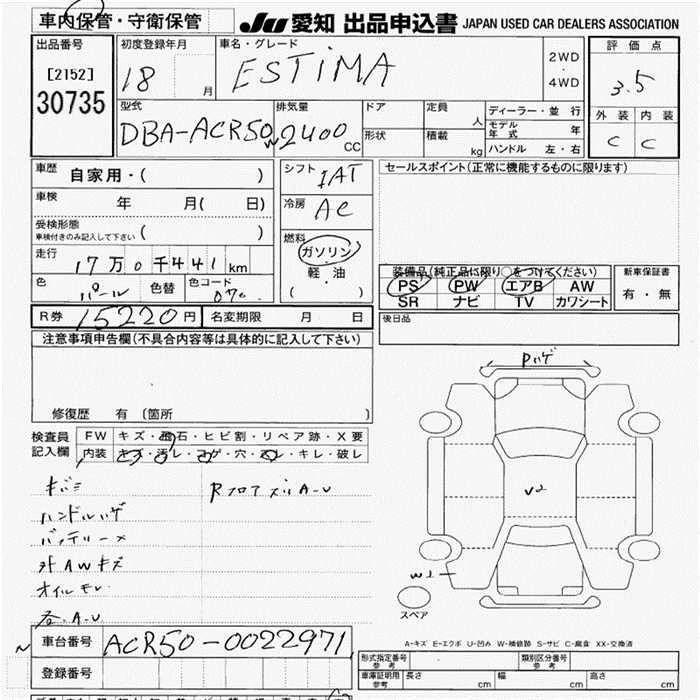 車内保管・守衛保管
JU 愛知 出品申込書 JAPAN USED CAR DEALERS ASSOCIATION
出品番号 初度登録年月 車名・グレード 2WD・4WD 評価点
[2152] 18 月 ESTiMA 3.5
30735
型式 排気量 ドア 定員 人 ディーラー・並行 外装 内装
DBA-ACR50W 2400 CC 形状 積載 kg モデル年式 年 C C
ハンドル 左・右
車歴 自家用・( ) シフト IAT セールスポイント(正常に機能するものに限ります)
車検 年 月( 日) 冷房 AC
受検形態 車検付きのみ記入して下さい ( ) 燃料
ガソリン
走行 17万0千441km 軽・油
色 パール 色替 色コード 070 ( )
装備品(純正品に限り○をつけてください) 新車保証書
PS PW エアB AW 有・無
SR ナビ TV カワシート
R券 15220円 名変期限 月 日 後日品
注意事項申告欄(不具合内容等は具体的に記入して下さい)
修復歴 有 (箇所
検査員記入欄 FW キズ・飛石・ヒビ割・リペア跡・X要
内装 キズ・汚レ・コゲ・穴・スレ・キレ・破レ
キバミ
ハンドルハゲ
バッテリーX
外AWキズ
オイルモレ
各A-U
Pハゲ
V2
W1
スペア
A-キズ E-エクボ U-凹み W-補修跡 S-サビ C-腐食 XX-交換済
車台番号 ACR50-0022971
登録番号
形式指定番号 参考 類別区分番号 参考
車庫証明用 参考 長さ cm 幅 cm 高さ cm